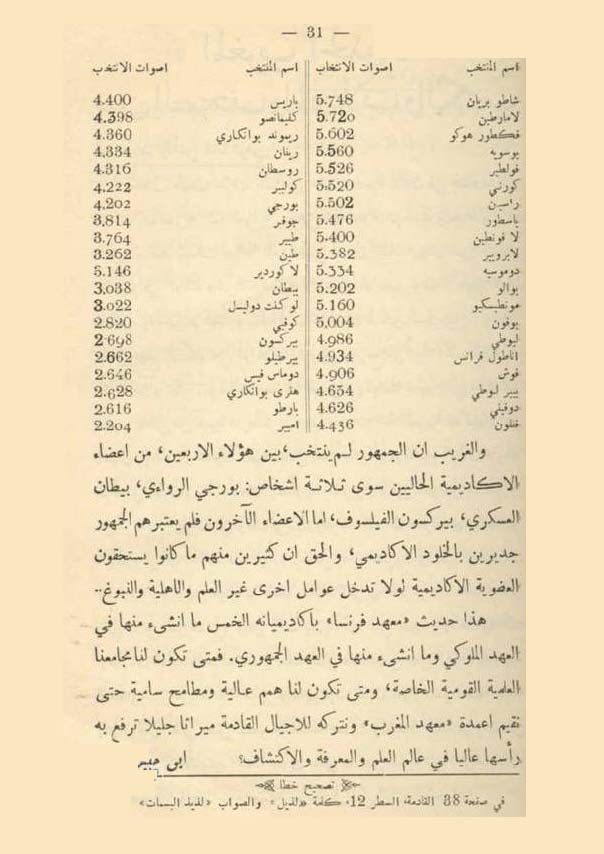 — 31 —
اسم المنتخب اصوات الانتخاب اسم المنتخب اصوات الانتخب
شاطو بريان 5.748 باريس 4.400
لامارطين 5.720 كليمانصو 4.398
فكطور هوكو 5.602 ريموند بوانكاري 4.360
بوسويه 5.560 رينان 4.334
فولطير 5.526 روسطان 4.316
كورني 5.520 كولبير 4.222
راسين 5.502 بورجي 4.202
باسطور 5.476 جوفر 3.814
لا فونطين 5.400 طيير 3.764
لابرويير 5.382 طين 3.262
دوموسيه 5.334 لاكوردير 5.146
بوالو 5.202 بيطان 3.038
مونطيسكيو 5.160 لوكنت دوليسل 3.022
بوفون 5.004 كوفيي 2.820
ليوطي 4.986 بيركسون 2.698
اناطول فرانس 4.934 بيرطيلو 2.662
فوش 4.906 دوماس فيس 2.646
بيير لوطي 4.654 هنري بوانكاري 2.628
دوفيني 4.626 بارطو 2.616
فنلون 4.436 امبير 2.204
والغريب ان الجمهور لم ينتخب، بين هؤلاء الاربعين، من اعضاء
الاكاديمية الحاليين سوى ثلاثة اشخاص: بورجي الرواءي، بيطان
العسكري، بيركسون الفيلسوف، اما الاعضاء الآخرون فلم يعتبرهم الجمهور
جديرين بالخلود الاكاديمي، والحق ان كثيرين منهم ما كانوا يستحقون
العضوية الاكاديمية لولا تدخل عوامل اخرى غير العلم والاهلية والنبوغ..
هذا حديث «معهد فرنسا» باكاديمياته الخمس ما انشىء منها في
العهد الملوكي وما انشىء منها في العهد الجمهوري. فمتى تكون لنا مجامعنا
العلمية القومية الخاصة، ومتى تكون لنا همم عالية ومطامح سامية حتى
نقيم اعمدة «معهد المغرب» ونتركه للاجيال القادمة ميراثا جليلا ترفع به
رأسها عاليا في عالم العلم والمعرفة والاكتشاف؟ ابن حبيبه
تصحيح خطا
في صفحة 38 القادمة، السطر 12، كلمة «لذيل» والصواب «لذيد البسمات»